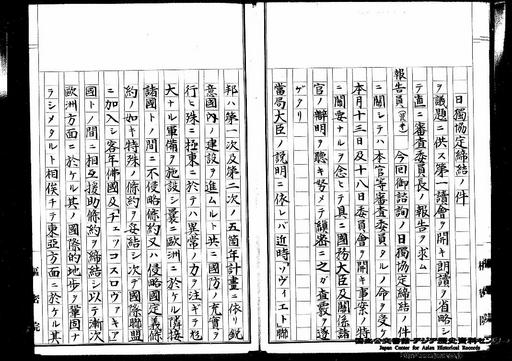 日獨協定締結ノ件
ヲ議題ニ供ス第一讀會ヲ開キ朗讀ヲ省略シ
テ直ニ審査委員長ノ報告ヲ求ム
報告員 今回御諮詢ノ日獨協定締結ノ件
ニ關シテハ本官等審査委員タルノ命ヲ受ケ
本月十三日及十八日委員會ヲ開キ事案ノ特
ニ關要ナルヲ念ヒテ具ニ國務大臣及關係諸
官ノ辯明ヲ聽キ努メテ縝審ニ之ガ査覈ヲ遂
ゲタリ
當局大臣ノ說明ニ依レバ近時「ソヴィエト」聯
邦ハ第一次及第二次ノ五箇年計畫ニ依リ銳
意國內ノ建設ヲ進ムルト共ニ國防ノ充實ヲ
行ヒ殊ニ極東ニ於テハ異常ノ力ヲ注ギテ尨
大ナル軍備ヲ施設シ曩ニ歐洲ニ於ケル隣接
諸國トノ間ニ不侵略條約又ハ侵略國定義條
約ノ如キ特殊ノ條約ヲ妥結シ次デ國際聯盟
ニ加入シ客年佛國及チェッコスロヴァキア
國トノ間ニ相互援助條約ヲ締結シ以テ漸次
歐洲方面ニ於ケル其ノ國際的地步ヲ鞏固ナ
ラシメタルト相俟チテ東亞方面ニ於ケル其
樞密院
樞密院
国立公文書館 アジア歴史資料センター
Japan Center for Asian Historical Records